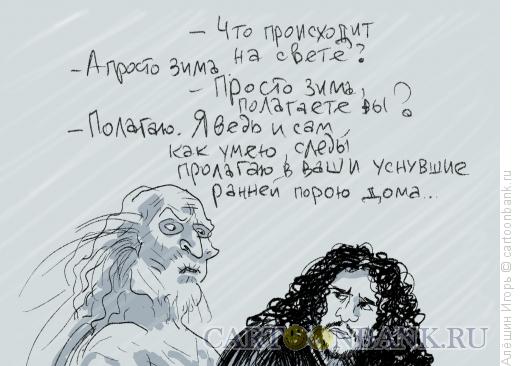 - Что происходит
на свете?
- А просто зима.
- Просто зима,
полагаете вы?
- Полагаю. Я ведь и сам,
как умею, следы
пролагаю в ваши уснувшие
ранней порою дома...
CARTOONBANK.RU
Алёшин Игорь © cartoonbank.ru